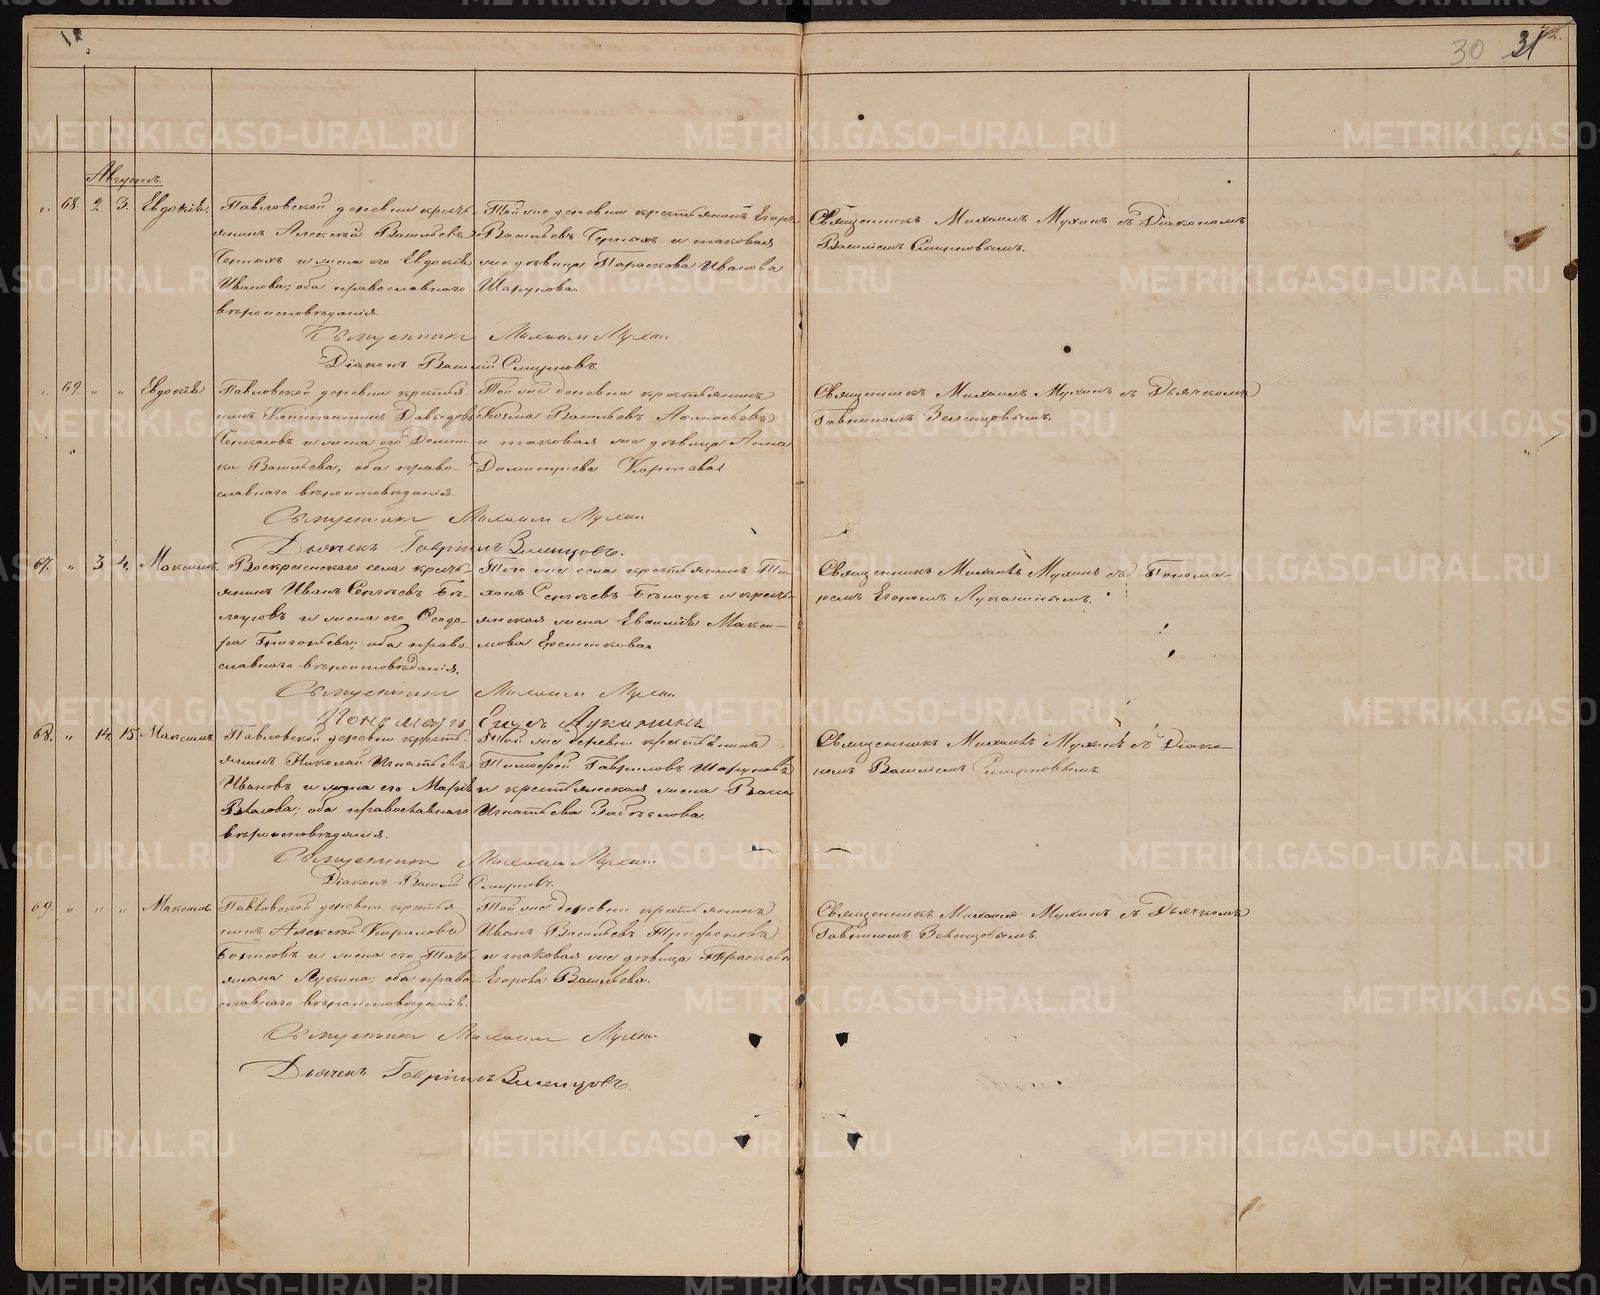 30 31 72.
Августъ.
„ 68. 2. 3. Евдокія.
Павловской деревни кресть-
янинъ Алексѣй Васильевъ
Черныхъ и жена его Евдокія
Иванова; оба православнаго
вѣроисповѣданія.
Той же деревни крестьянинъ Егоръ
Васильевъ Черныхъ и таковая
же дѣвица Параскова Иванова
Шарунова.
Священникъ Михаилъ Мухинъ съ Діакономъ
Василіемъ Смирновымъ.
Священникъ Михаилъ Мухин
Діаконъ Василій Смирновъ.
„ 69. „ „ Евдокія
Павловской деревни крестья-
нинъ Константинъ Давидовъ
Черкасовъ и жена его Домни-
ка Васильева; оба право-
славнаго вѣроисповѣданія.
Той же деревни крестьянинъ
Козма Васильевъ
и таковая же дѣвица Анна
Димитріева
Священникъ Михаилъ Мухинъ съ Дьячкомъ
Гавріиломъ Зеленцовымъ.
Священникъ Михаилъ Мухин
Дьячекъ Гавріилъ Зеленцовъ.
67. „ 3 4. Максимъ.
Воскресенскаго села кресть-
янинъ Иванъ Сергѣевъ Бѣ-
лоусовъ и жена его Ѳеодо-
ра Григорьева; оба право-
славнаго вѣроисповѣданія.
Того же села крестьянинъ Ти-
хонъ Сергѣевъ Бѣлоусъ и кресть-
янская жена Евдокія Макси-
мова
Священникъ Михаилъ Мухинъ съ Понома-
ремъ Егоромъ Луканинымъ.
Священникъ Михаилъ Мухин
Пономарь Егоръ Луканинъ
68. „ 14. 15. Максимъ.
Павловской деревни кресть-
янинъ Николай Игнатьевъ
Ивановъ и жена его Марія
Власова; оба православнаго
вѣроисповѣданія.
Той же деревни крестьянинъ
Тимофей Гавриловъ Шаруновъ
и крестьянская жена Васса
Игнатьева
Священникъ Михаилъ Мухинъ съ Діако-
номъ Василіемъ Смирновымъ.
Священникъ Михаилъ Мухин
Діаконъ Василій Смирновъ.
69. „ „ „ Максимъ.
Павловской деревни крестья-
нинъ Алексѣй Кириловъ
Борисовъ и жена его Тать-
яна Лукина; оба право-
славнаго вѣроисповѣданія.
Той же деревни крестьянинъ
Иванъ Васильевъ Трифоновъ
и таковая же дѣвица Праскева
Егорова Васильева.
Священникъ Михаилъ Мухинъ съ Дьячкомъ
Гавріиломъ Зеленцовымъ.
Священникъ Михаилъ Мухин
Дьячекъ Гавріилъ Зеленцовъ.
METRIKI.GASO-URAL.RU